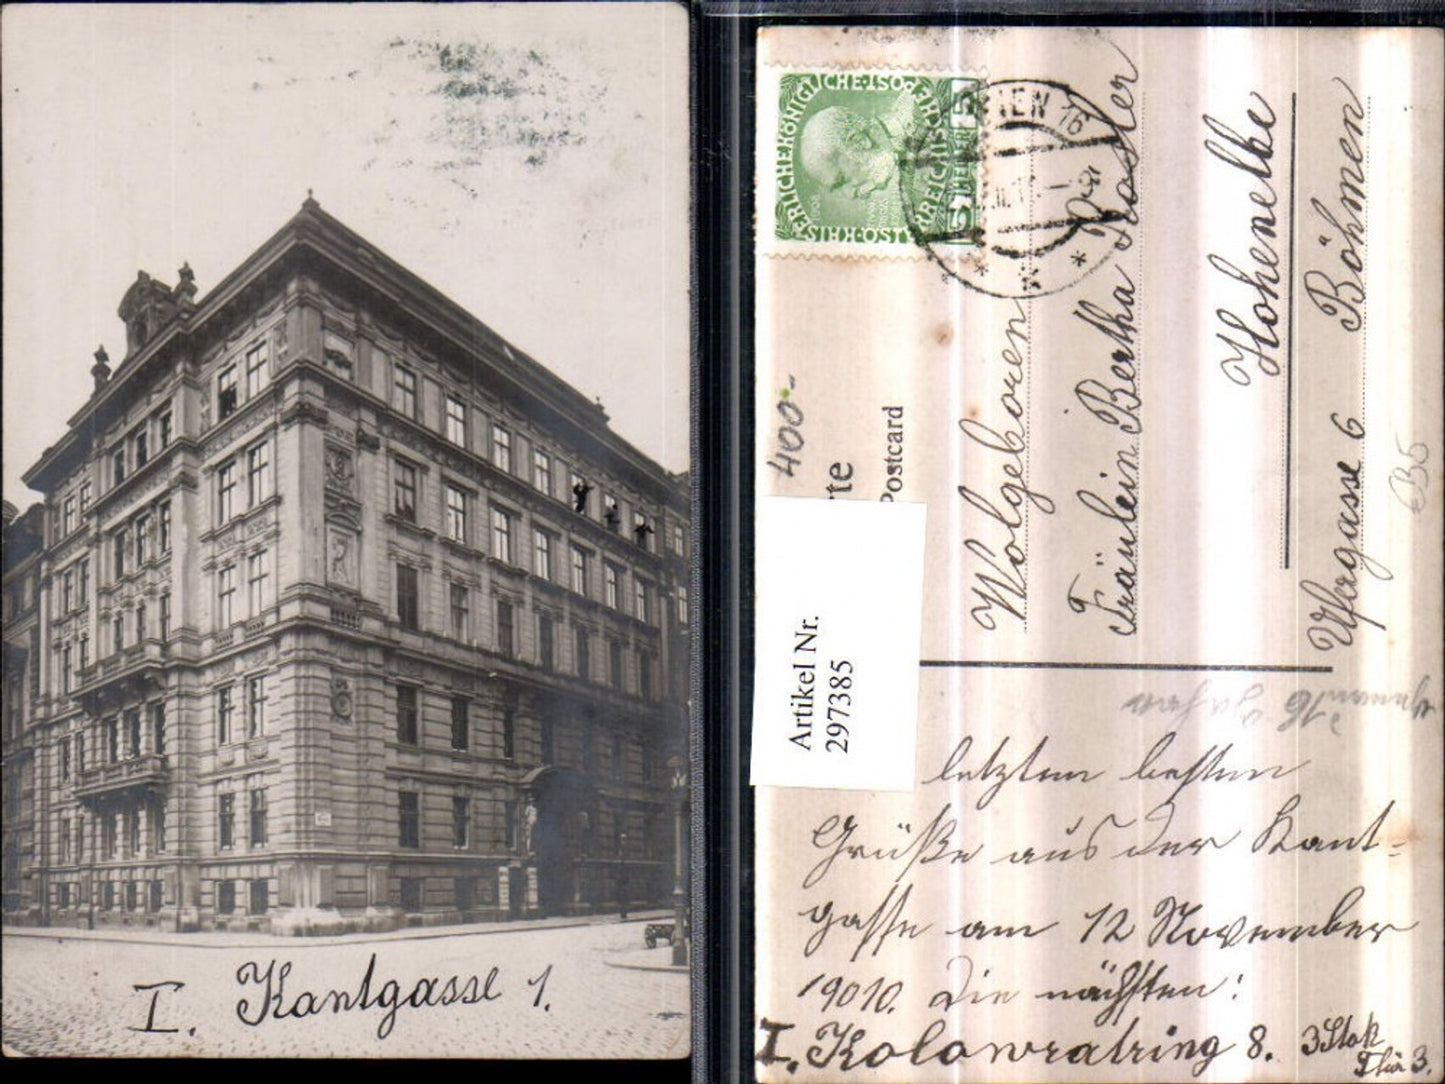 I. Kantgasse 1.
KAISERLICHE KÖNIGLICHE POST
5 HELLER 5
WIEN 16
400-
rte
Postcard
Artikel Nr.
297385
Wolgeboren
Fräulein Bertha
Hohenelbe
6 Böhmen
B5
letzten besten
Grüße aus der Kant-
gasse am 12 November
19010. Die nächsten:
I. Kolowratring 8. 3 Stok
Thür 3.